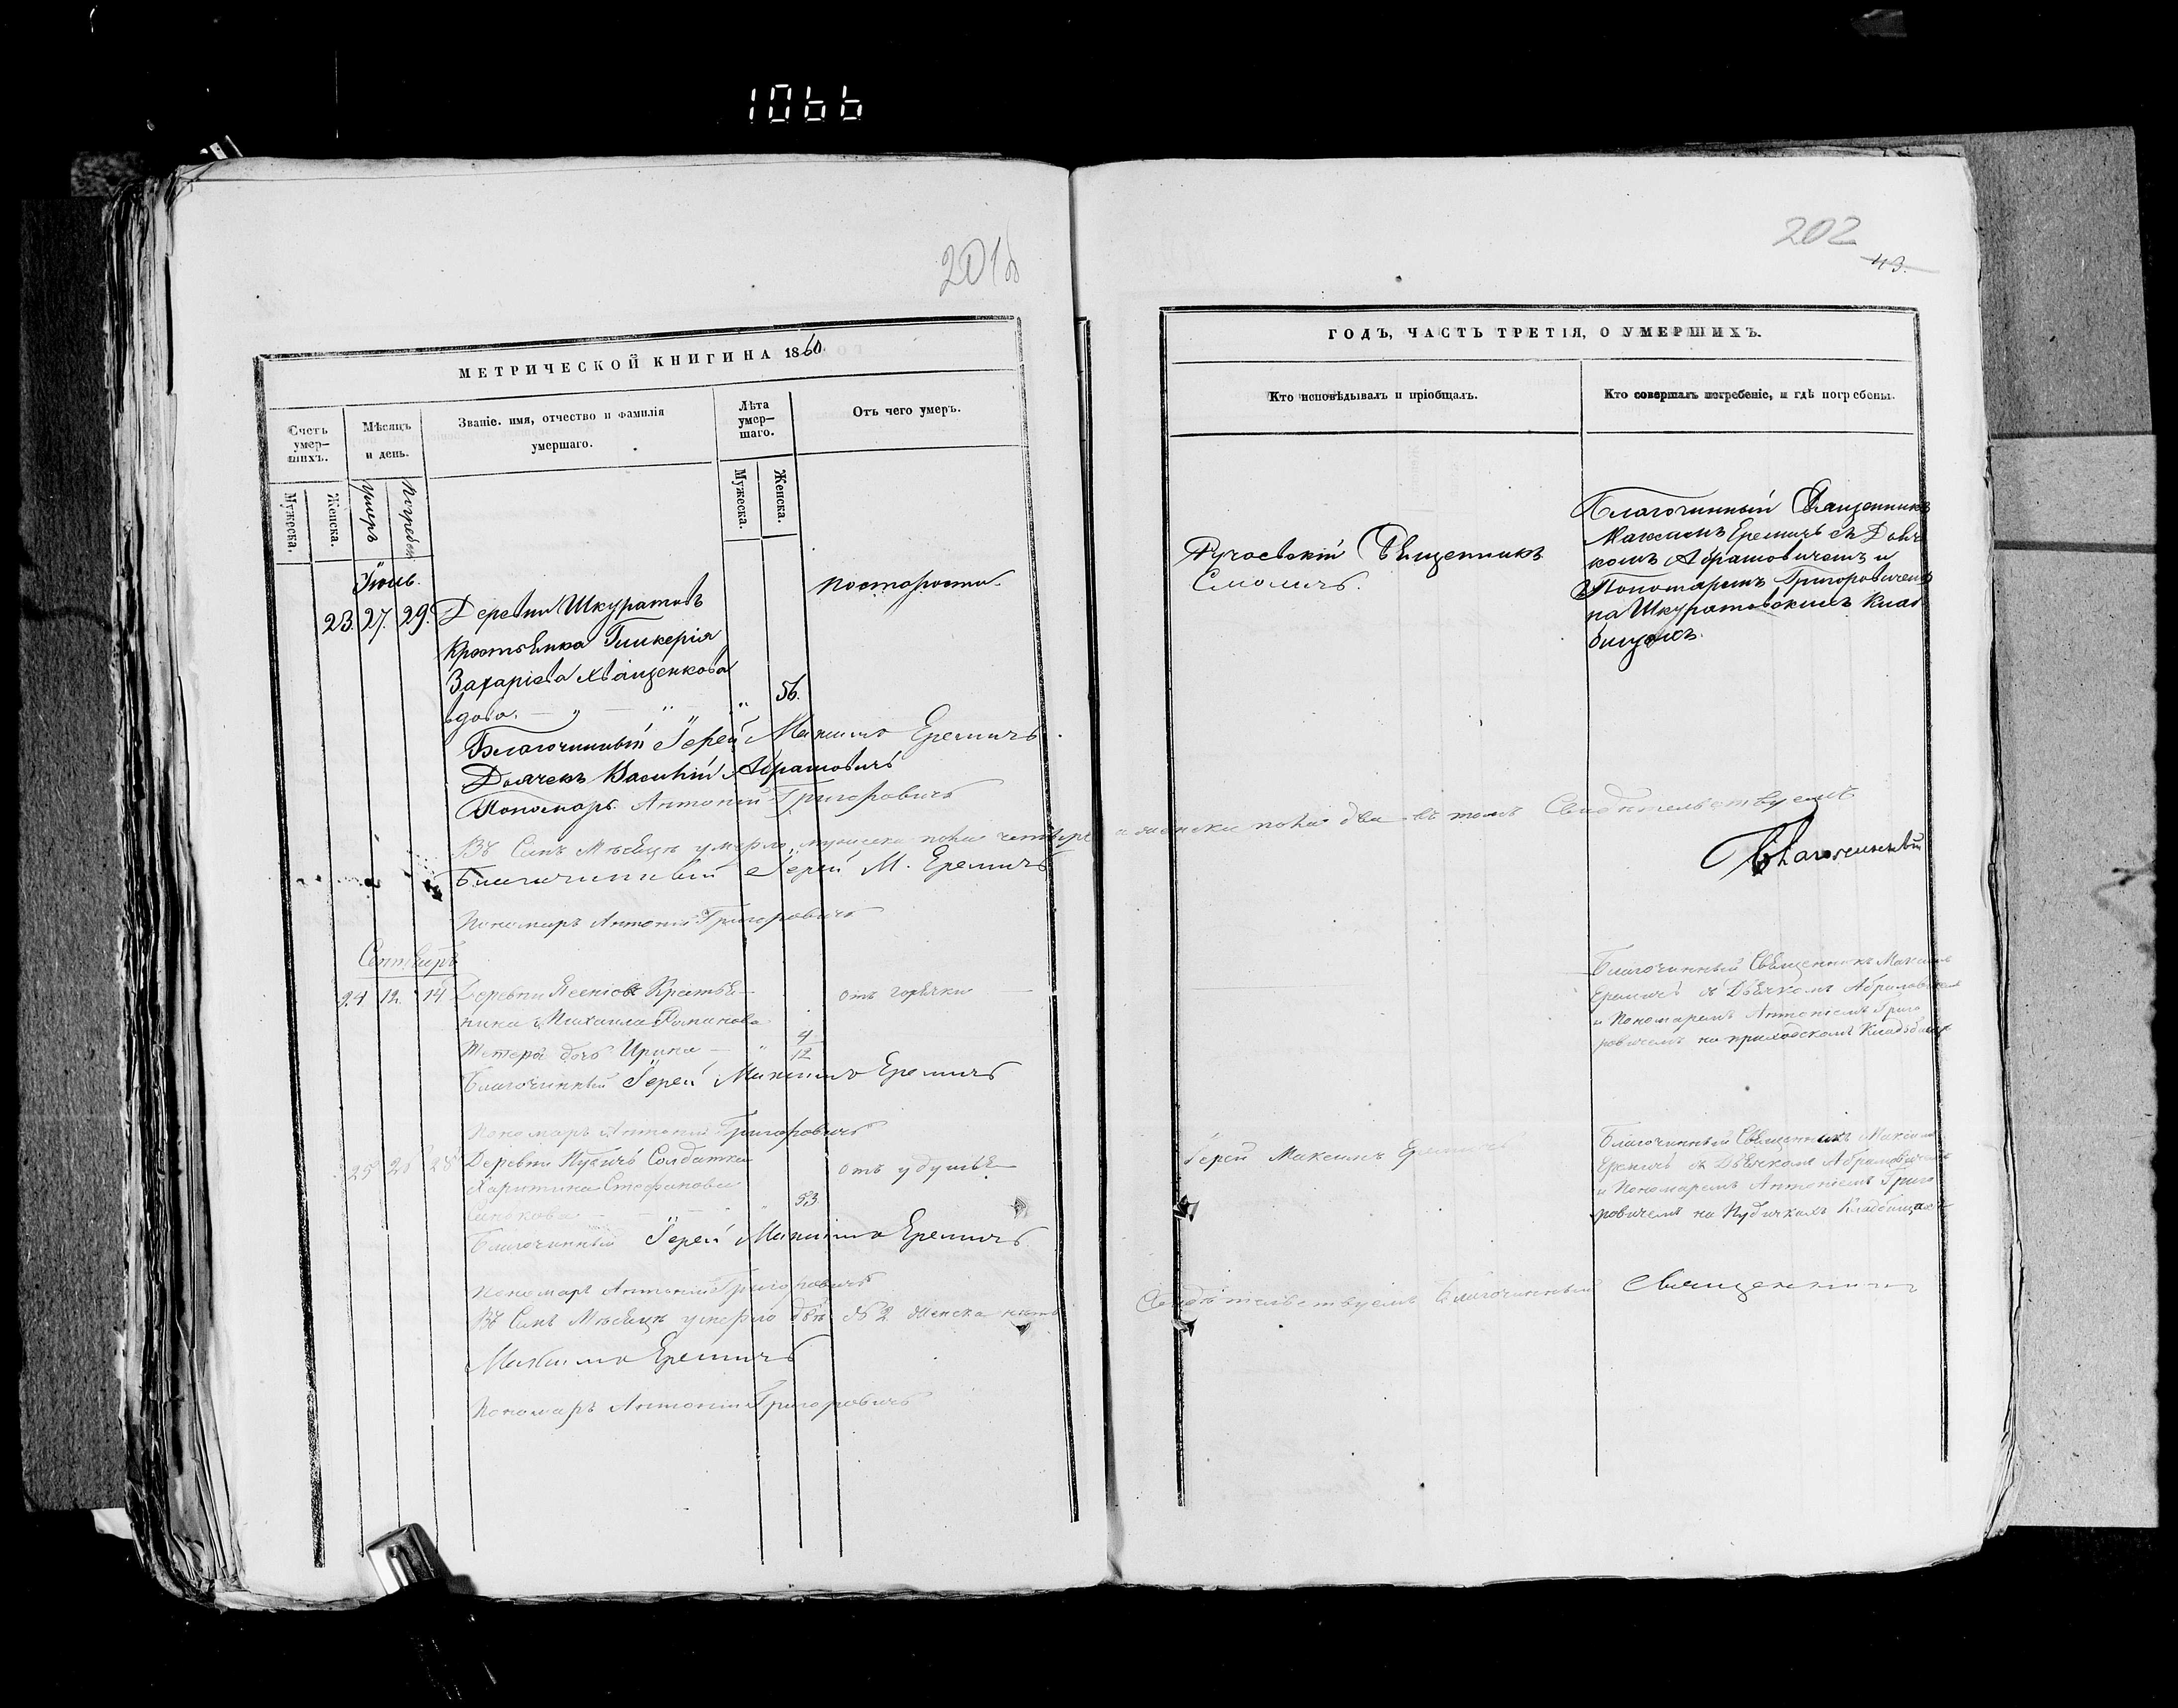 1066
201б
МЕТРИЧЕСКОЙ КНИГИ НА 1860
Счетъ умер-шихъ.
Мѣсяцъ и день.
Званіе, имя, отчество и фамилія умершаго.
Лѣта умер-шаго.
Отъ чего умеръ.
Мужеска.
Женска.
Умеръ
Погребен
Мужеска.
Женска.
Іюль.
23. 27. 29. Деревни Шкуратовъ
постарости.
Крестьянка Гликерія
Захаріева Хващенкова
вдова. 56.
Благочинный Іерей Максимъ Еремичъ.
Дьячекъ Василій Абрамовичъ
Пономарь Антоній Григоровичъ
Въ Семъ Мѣсяцѣ умерло мужеска пола четыре
Благочинный Іерей М. Еремичъ
Пономарь Антоній Григоровичъ
Сентябрь
24 12. 14 Деревни Крестья-
отъ горячки
нина Михаила Романова
дочь Ирина 4/12
Благочинный Іерей Максимъ Еремичъ
Пономарь Антоній Григоровичъ
25 26 28 Деревни Пудичъ Солдатка
отъ удушья
Харитина Стефанова
53
Благочинный Іерей Максимъ Еремичъ
Пономарь Антоній Григоровичъ
Въ Семъ Мѣсяцѣ умерло 2 женска
Максимъ Еремичъ
Пономарь Антоній Григоровичъ
202
43.
ГОДЪ, ЧАСТЬ ТРЕТІЯ, О УМЕРШИХЪ.
Кто исповѣдывалъ и пріобщалъ.
Кто совершалъ погребеніе, и гдѣ погребены.
Священникъ
Смоличъ.
Благочинный Священникъ
Максимъ Еремичъ съ Дьяч
комъ Абрамовичемъ и
Пономаремъ Григоровичемъ
на Шкуратовскихъ Клад
бищахъ.
а женска пола два въ томъ Свидѣтельствуемъ
Благочинный
Благочинный Священникъ Максимъ
Еремичъ съ Дьячкомъ Абрамовичемъ
и Пономаремъ Антоніемъ Григо
ровичемъ на приходскомъ Кладбищѣ
Іерей Максимъ Еремичъ
Благочинный Священникъ Максимъ
Еремичъ съ Дьячкомъ Абрамовичемъ
и Пономаремъ Антоніемъ Григо
ровичемъ на Пудичкихъ Кладбищахъ
Свидѣтельствуемъ Благочинный Священникъ